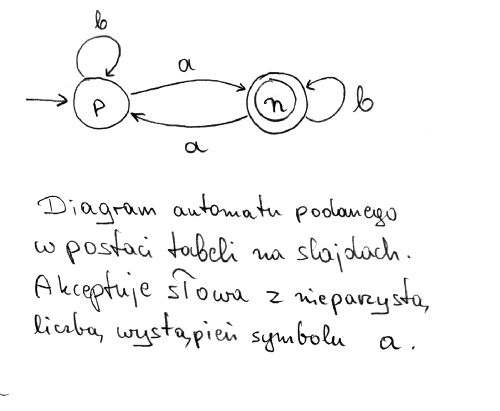 b
a
p
n
b
a
Diagram automatu podanego
w postaci tabeli na slajdach.
Akceptuje słowa z nieparzystą
liczbą wystąpień symbolu a.